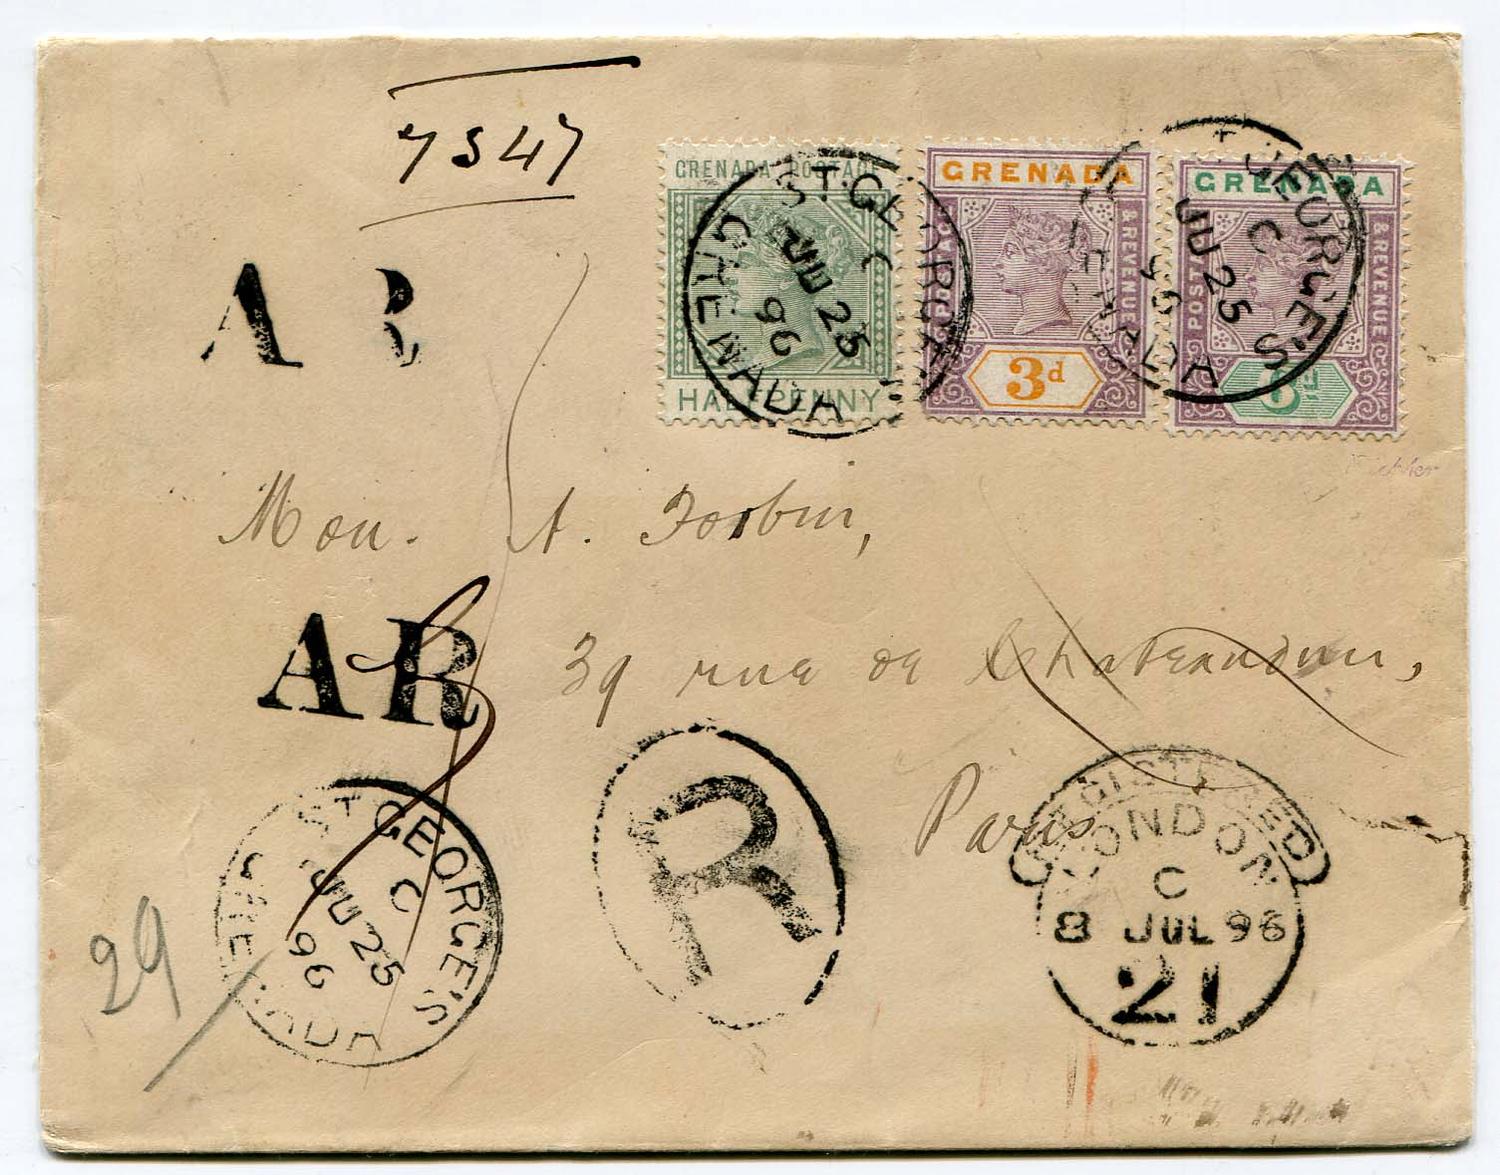 7547
GRENADA POSTAGE
HALFPENNY
GRENADA
POSTAGE & REVENUE
3d
GRENADA
POSTAGE & REVENUE
6d
ST. GEORGE'S
C
JU 25
96
GRENADA
ST. GEORGE'S
C
JU 25
96
GRENADA
A R
Mon. A. Forbin,
A R
39 rue de Chateaudun,
Paris
ST. GEORGE'S
C
JU 25
96
GRENADA
R
REGISTERED
LONDON
C
8 JUL 96
21
29